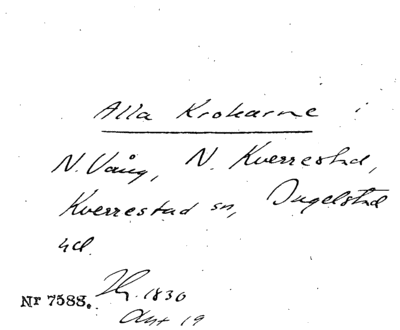 Alla Krokarne
N. Vång, N. Kverrestad,
Kverrestad sn, Ingelstad
hd.
Nr 7588. 1830
Akt 19